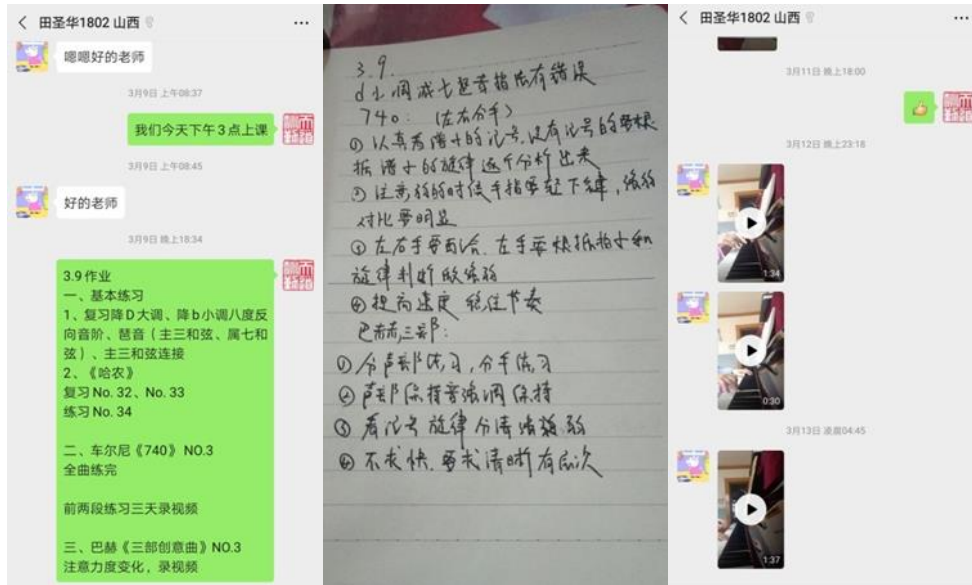 田圣华1802 山西
嗯嗯好的老师
3月9日 上午08:37
我们今天下午3点上课
3月9日 上午08:45
好的老师
3月9日 晚上18:34
3.9作业
一、基本练习
1、复习降D大调、降b小调八度反
向音阶、琶音（主三和弦、属七和
弦）、主三和弦连接
2、《哈农》
复习No. 32、No. 33
练习No. 34
二、车尔尼《740》NO.3
全曲练完
前两段练习三天录视频
三、巴赫《三部创意曲》NO.3
注意力度变化，录视频
3.9
d小调减七琶音指法有错误
740：（左右分手）
①认真看谱子的记号,没有记号的要根
据谱子的旋律逐个分析出来
②注意弱的时候手指要轻下键，强弱
对比要明显
③左右手要配合.左手要根据拍子和
旋律判断做强弱
④提高速度 稳住节奏
巴赫三部：
①分声部练习,分手练习
②声部保持音强调保持
③看记号旋律分清强弱
④不求快.要求清晰有层次
田圣华1802 山西
3月11日 晚上18:00
3月12日 晚上23:18
1:34
0:30
3月13日 凌晨04:45
1:37